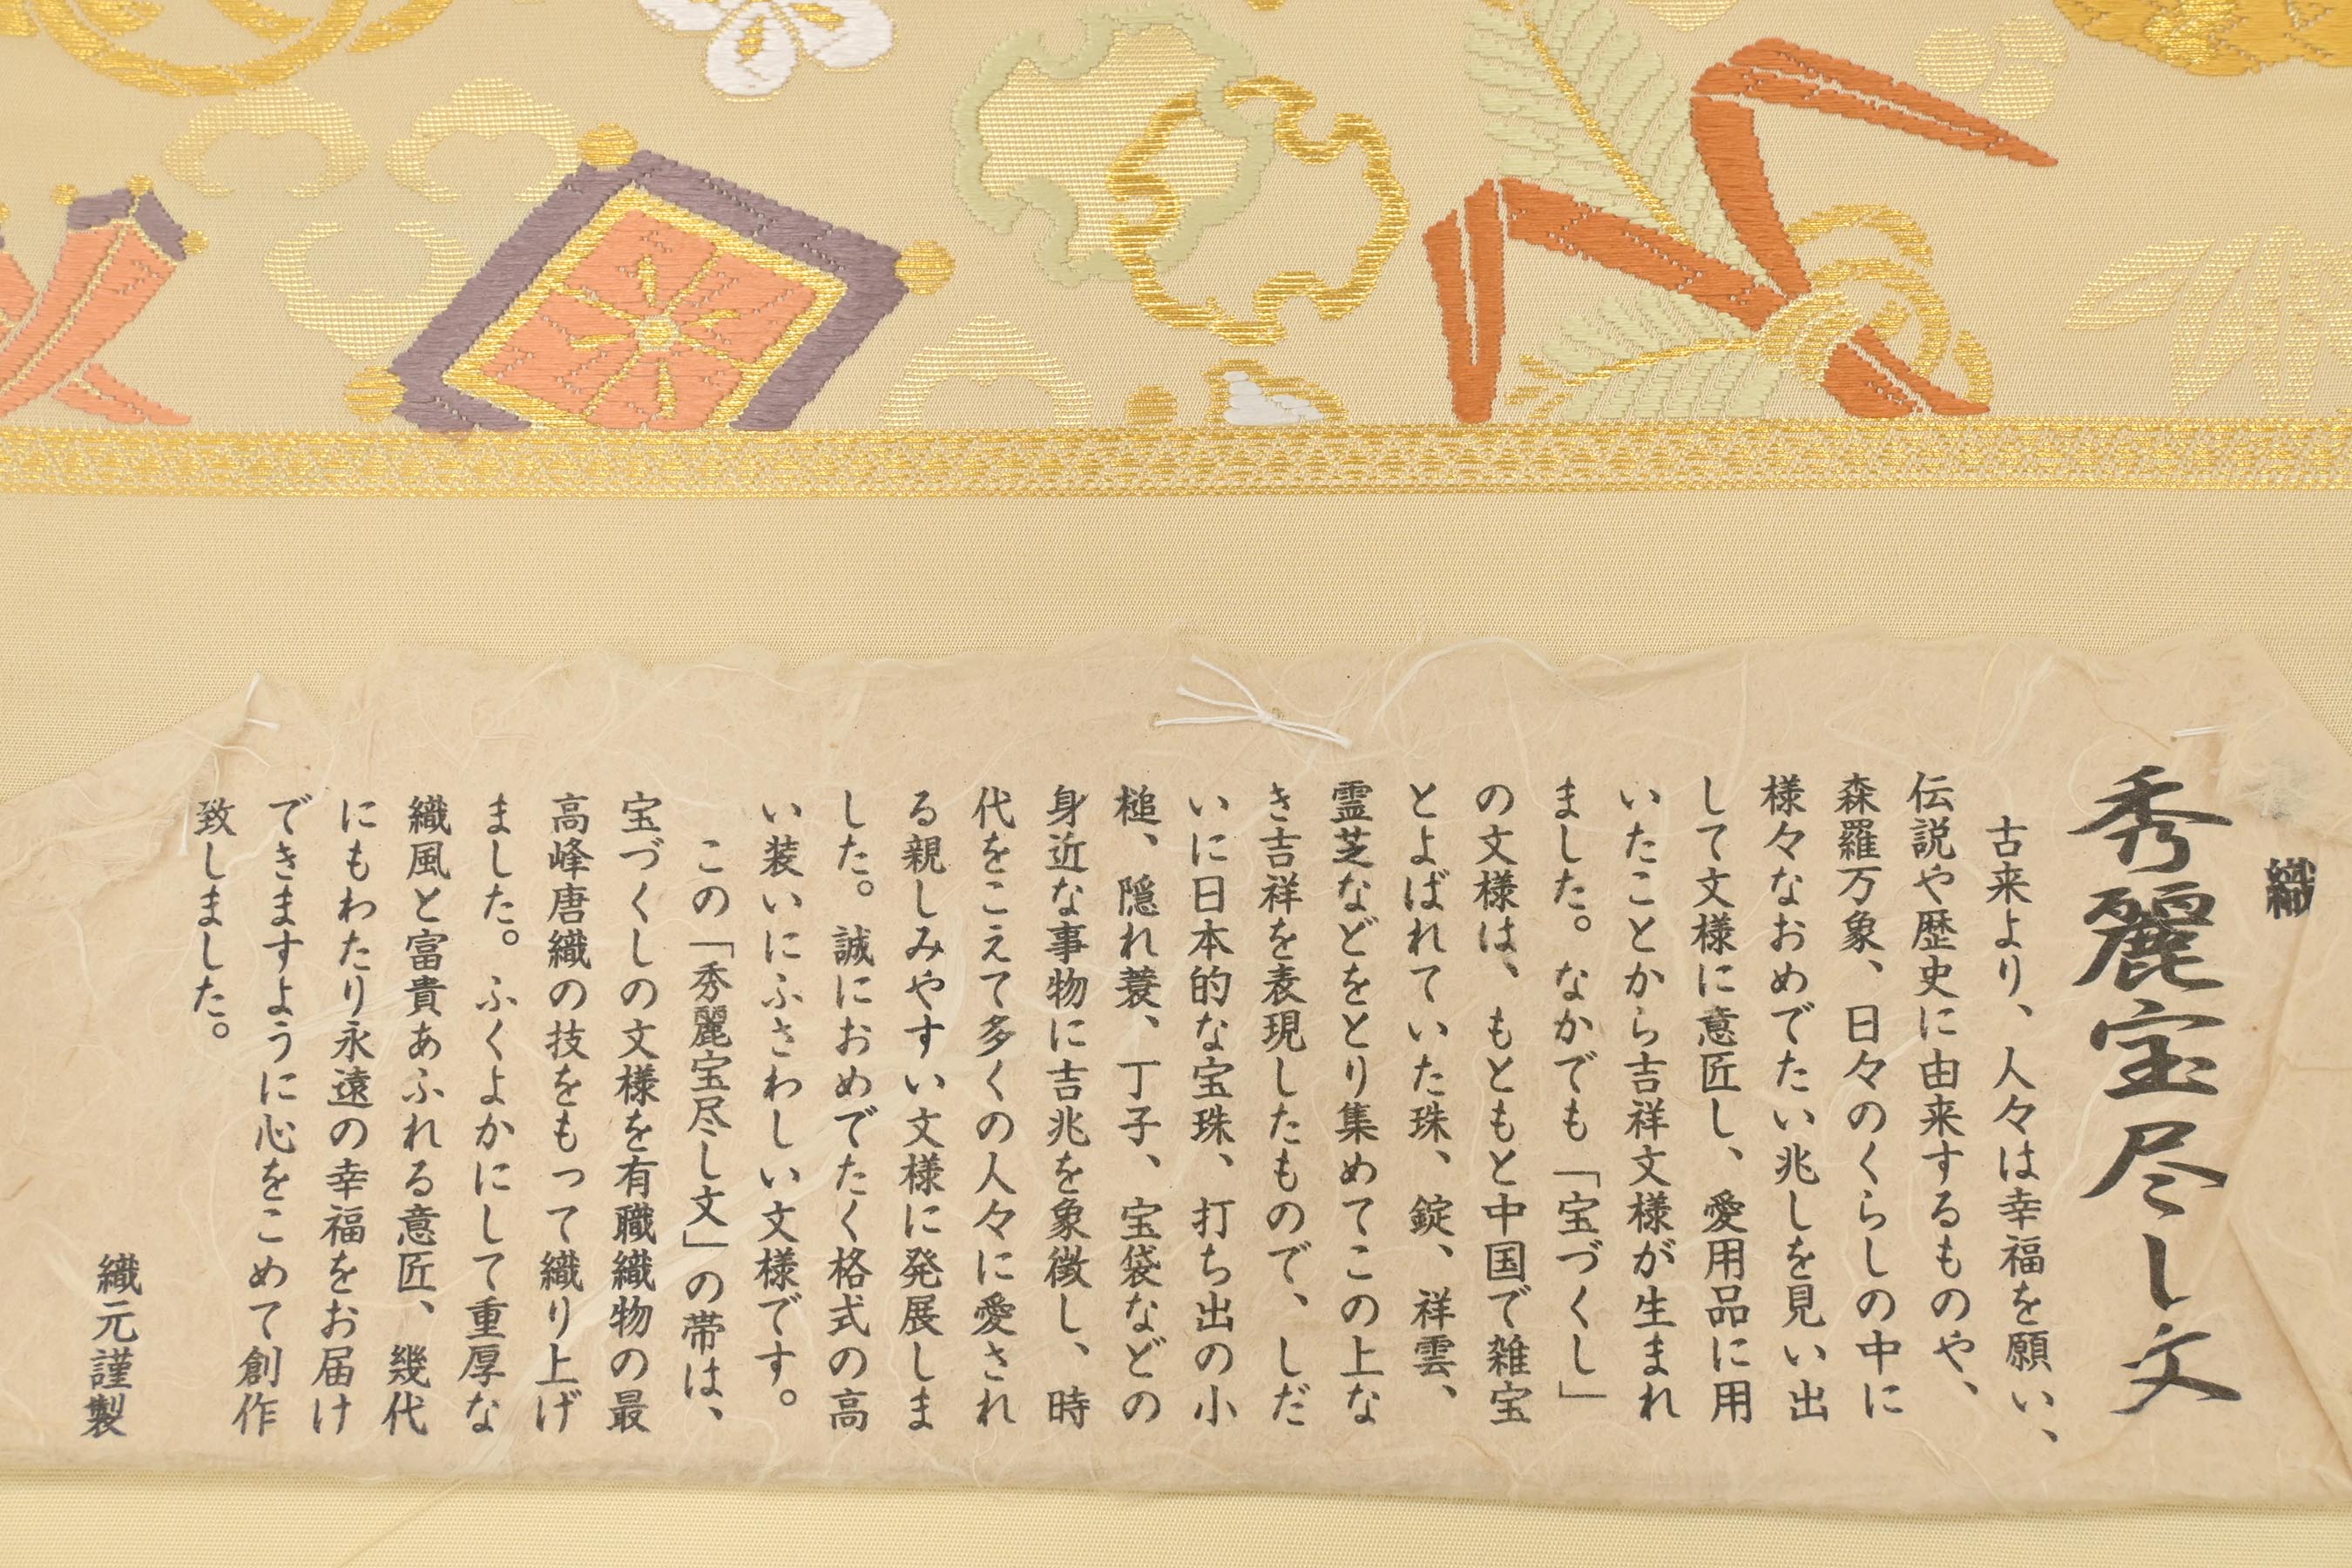 織
秀麗宝尽し文
古来より、人々は幸福を願い、
伝説や歴史に由来するものや、
森羅万象、日々のくらしの中に
様々なおめでたい兆しを見い出
して文様に意匠し、愛用品に用
いたことから吉祥文様が生まれ
ました。なかでも「宝づくし」
の文様は、もともと中国で雑宝
とよばれていた珠、錠、祥雲、
霊芝などをとり集めてこの上な
き吉祥を表現したもので、しだ
いに日本的な宝珠、打ち出の小
槌、隠れ蓑、丁子、宝袋などの
身近な事物に吉兆を象徴し、時
代をこえて多くの人々に愛され
る親しみやすい文様に発展しま
した。誠におめでたく格式の高
い装いにふさわしい文様です。
この「秀麗宝尽し文」の帯は、
宝づくしの文様を有職織物の最
高峰唐織の技をもって織り上げ
ました。ふくよかにして重厚な
織風と富貴あふれる意匠、幾代
にもわたり永遠の幸福をお届け
できますように心をこめて創作
致しました。
織元謹製